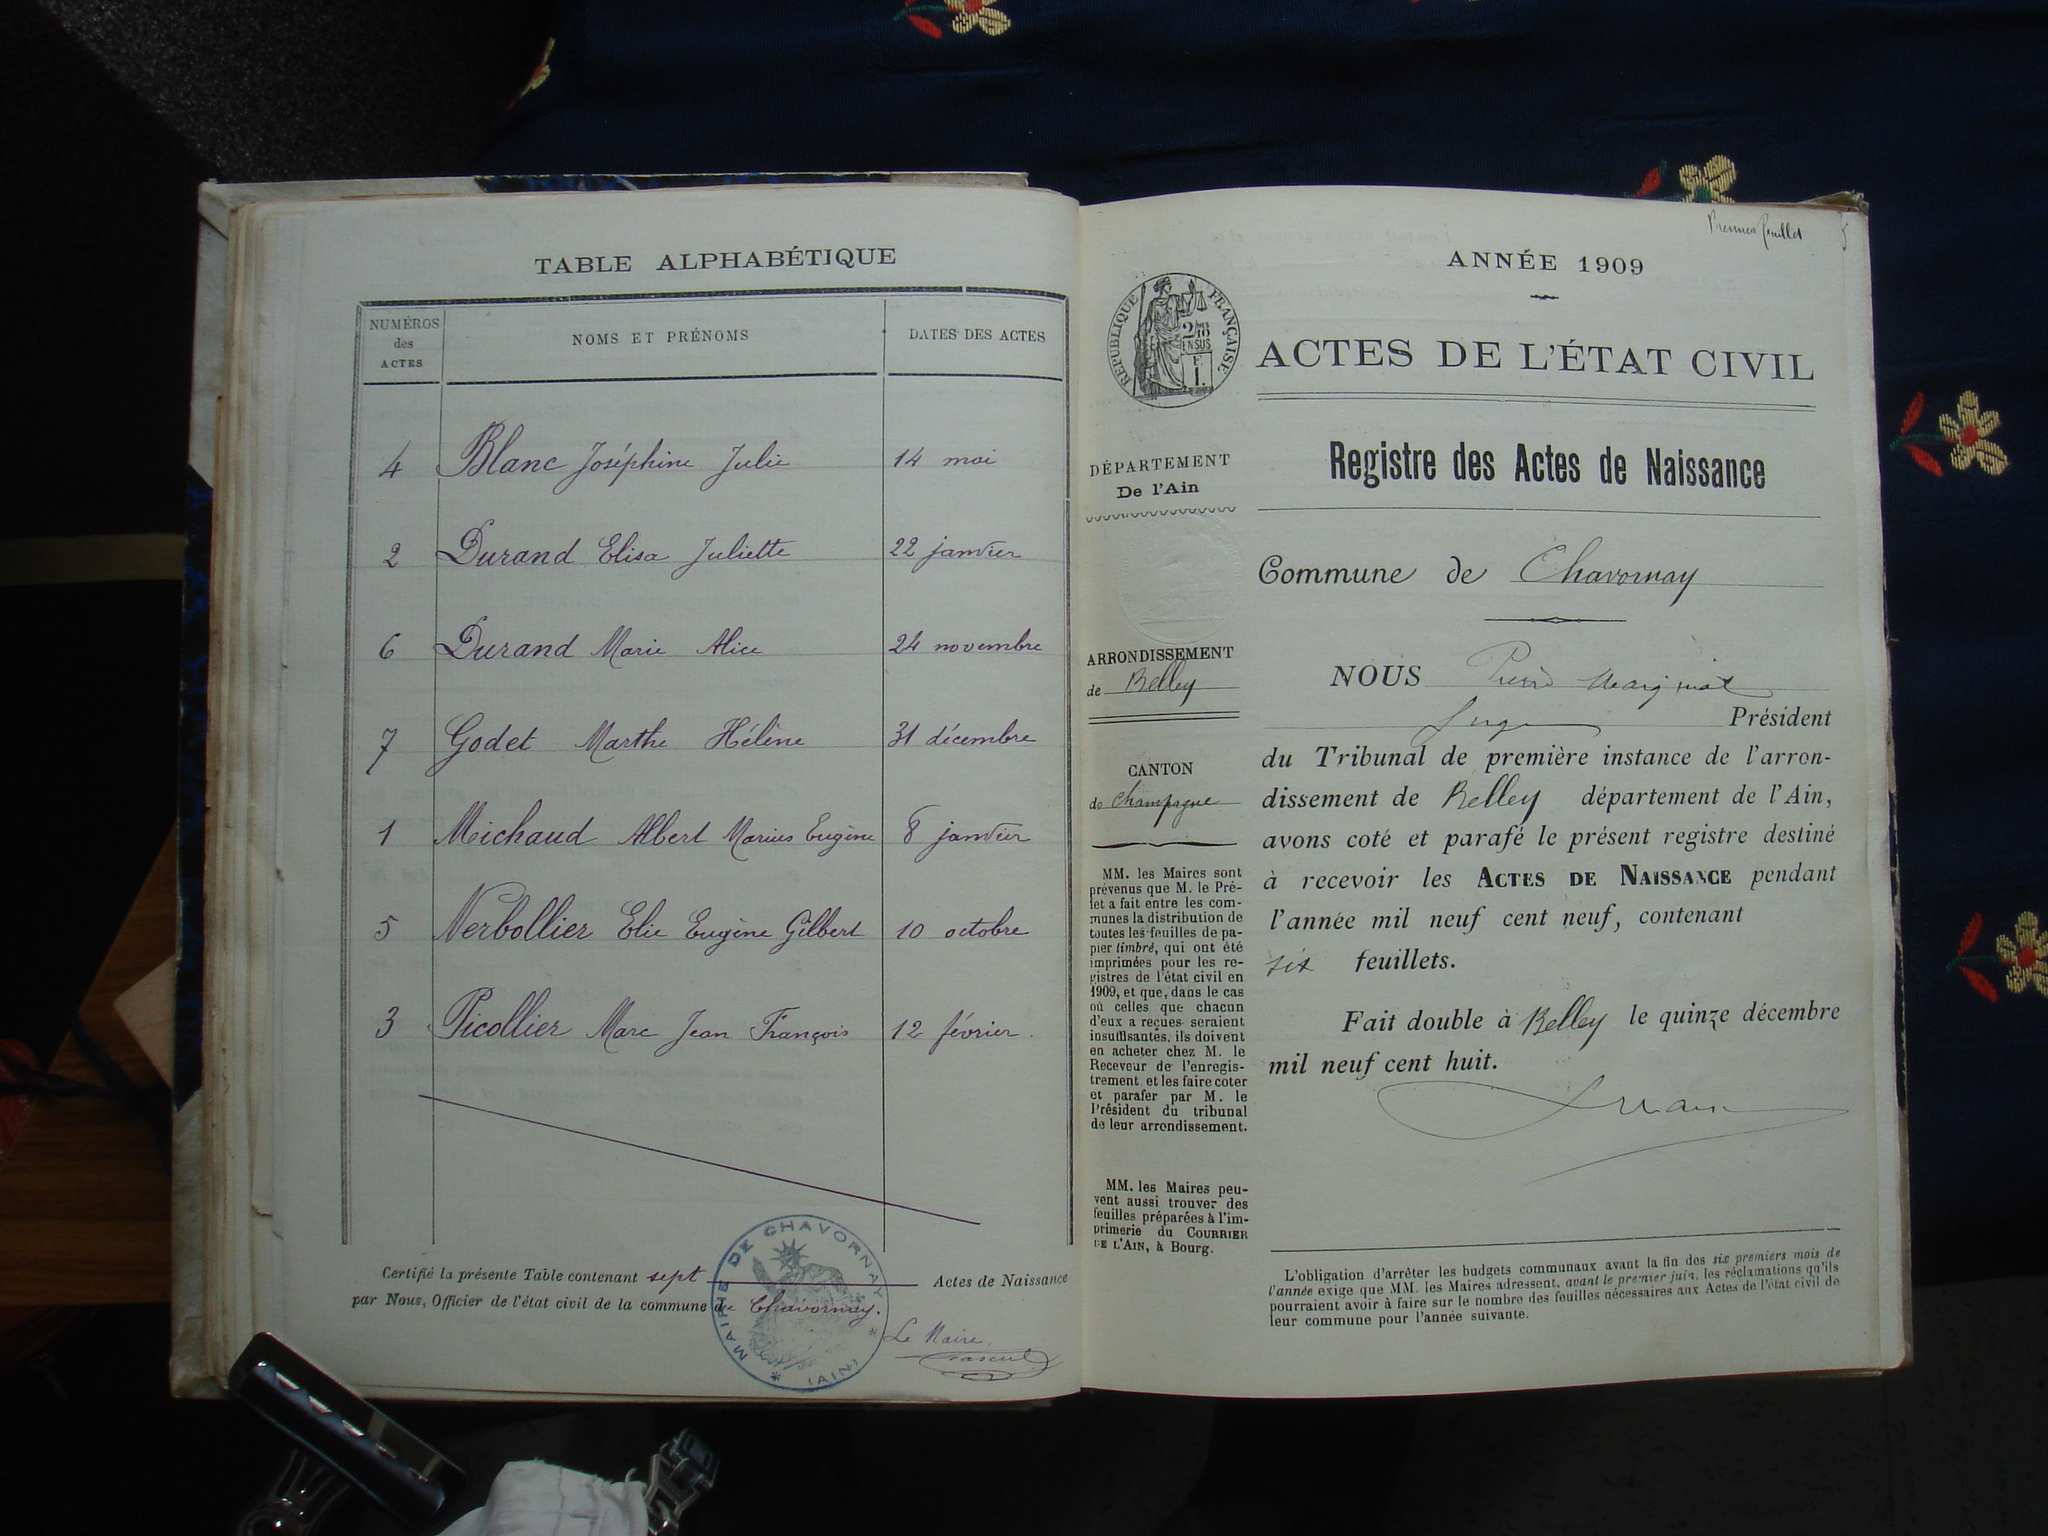 TABLE ALPHABÉTIQUE
NUMÉROS des ACTES NOMS ET PRÉNOMS DATES DES ACTES
4 Blanc Joséphine Julie 14 mai
2 Durand Elisa Juliette 22 janvier
6 Durand Marie Alice 24 novembre
7 Godet Marthe Hélène 31 décembre
1 Michaud Albert Marius Eugène 8 janvier
5 Nerbollier Elie Eugène Gilbert 10 octobre
3 Picollier Marc Jean François 12 février.
Certifié la présente Table contenant sept Actes de Naissance
par Nous, Officier de l'état civil de la commune de Chavornay.
Le Maire
MAIRIE DE CHAVORNAY
(AIN)
Premier feuillet
ANNÉE 1909
RÉPUBLIQUE FRANÇAISE
ACTES DE L'ÉTAT CIVIL
Registre des Actes de Naissance
DÉPARTEMENT
De l'Ain
Commune de Chavornay
ARRONDISSEMENT
de Belley
CANTON
de Champagne
MM. les Maires sont
prévenus que M. le Pré-
fet a fait entre les com-
munes la distribution de
toutes les feuilles de pa-
pier timbré, qui ont été
imprimées pour les re-
gistres de l'état civil en
1909, et que, dans le cas
où celles que chacun
d'eux a reçues seraient
insuffisantes, ils doivent
en acheter chez M. le
Receveur de l'enregis-
trement et les faire coter
et parafer par M. le
Président du tribunal
de leur arrondissement.
MM. les Maires peu-
vent aussi trouver des
feuilles préparées à l'im-
primerie du COURRIER
DE L'AIN, à Bourg.
NOUS Pierre
Juge Président
du Tribunal de première instance de l'arron-
dissement de Belley département de l'Ain,
avons coté et parafé le présent registre destiné
à recevoir les ACTES DE NAISSANCE pendant
l'année mil neuf cent neuf, contenant
six feuillets.
Fait double à Belley le quinze décembre
mil neuf cent huit.
L'obligation d'arrêter les budgets communaux avant la fin des six premiers mois de
l'année exige que MM. les Maires adressent, avant le premier juin, les réclamations qu'ils
pourraient avoir à faire sur le nombre des feuilles nécessaires aux Actes de l'état civil de
leur commune pour l'année suivante.